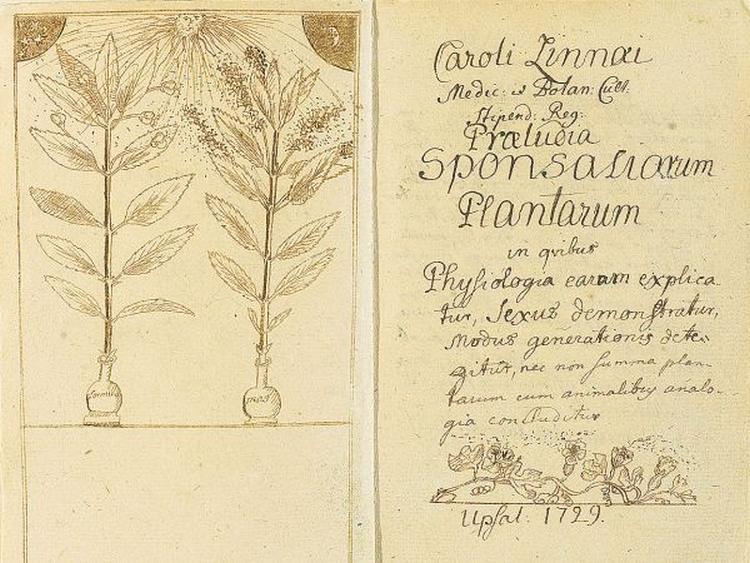 foemina
mas
Caroli Linnæi
Medic: & Botan: Cult.
Stipend: Reg:
Præludia
Sponsaliarum
Plantarum
in qvibus
Physiologia earum explica-
tur, Sexus demonstratur,
Modus generationis dete-
gitur, nec non summa plan-
tarum cum animalibus analo-
gia concluditur
Upsal. 1729.